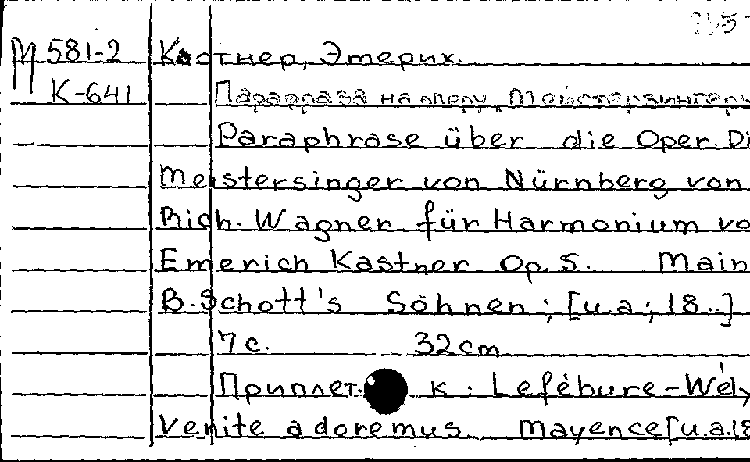 М 581-2 Кастнер, Этерих.
К-641 Парафраза на оперу „Мейстерзингеры
Paraphrase über die Oper Di
Meistersinger von Nürnberg von
Rich. Wagner für Harmonium vo
Emerich Kastner Op. 5. Main
B. Schott's Söhnen; [u.a.; 18..]
7 с. 32 cm
Приплет. к: Lefébure-Wély
Venite adoremus Mayence [u.a. 18